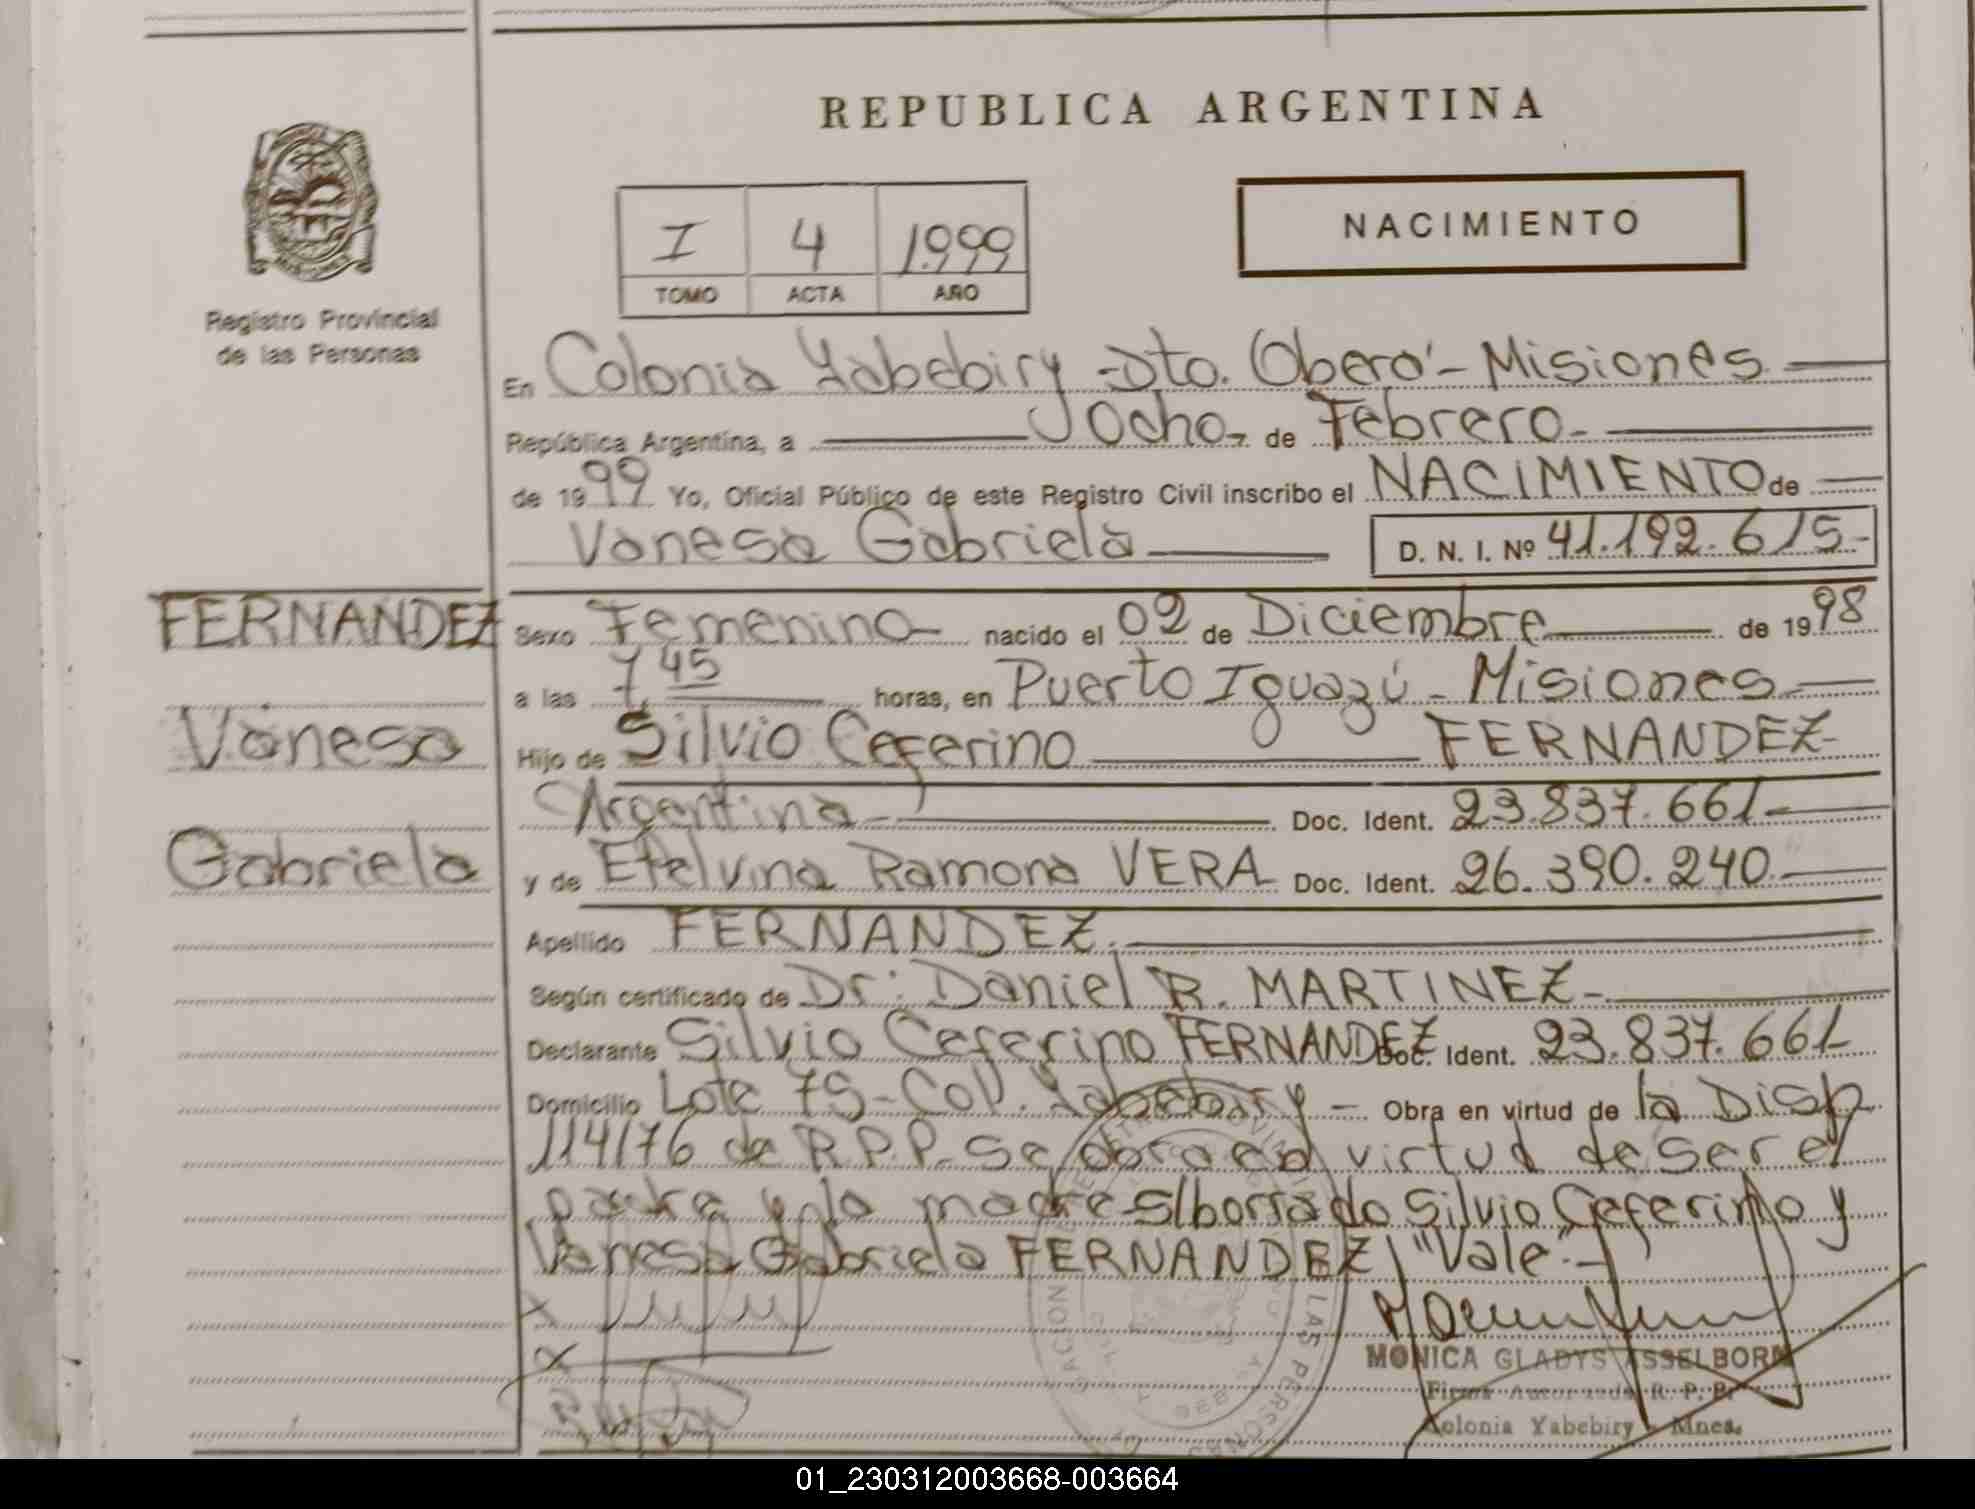 REPUBLICA ARGENTINA
NACIMIENTO
I 4 1.999
TOMO ACTA AÑO
Registro Provincial
de las Personas
En Colonia Yabebiry - Dto. Oberá - Misiones
República Argentina, a Ocho de Febrero
de 1999 Yo, Oficial Público de este Registro Civil inscribo el NACIMIENTO de
Vanesa Gabriela D. N. I. Nº 41.192.615-
FERNANDEZ
Vanesa
Gabriela
Sexo Femenino nacido el 02 de Diciembre de 1998
a las 7,45 horas, en Puerto Iguazú - Misiones
Hijo de Silvio Ceferino FERNANDEZ
Argentina Doc. Ident. 23.837.661-
y de Etelvina Ramona VERA Doc. Ident. 26.390.240
Apellido FERNANDEZ.
Según certificado de Dr. Daniel R. MARTINEZ-
Declarante Silvio Ceferino FERNANDEZ Doc. Ident. 23.837.661
Domicilio Lote 75 - Col. Yabebiry - Obra en virtud de la Disp
114/76 de R.P.P. Se obra en virtud de ser el
padre y la madre S/borrado Silvio Ceferino y
Vanesa Gabriela FERNANDEZ "Vale"-
MONICA GLADYS ASSELBORN
Firma Autorizada R. P. P.
Colonia Yabebiry - Mnes.
01_230312003668-003664